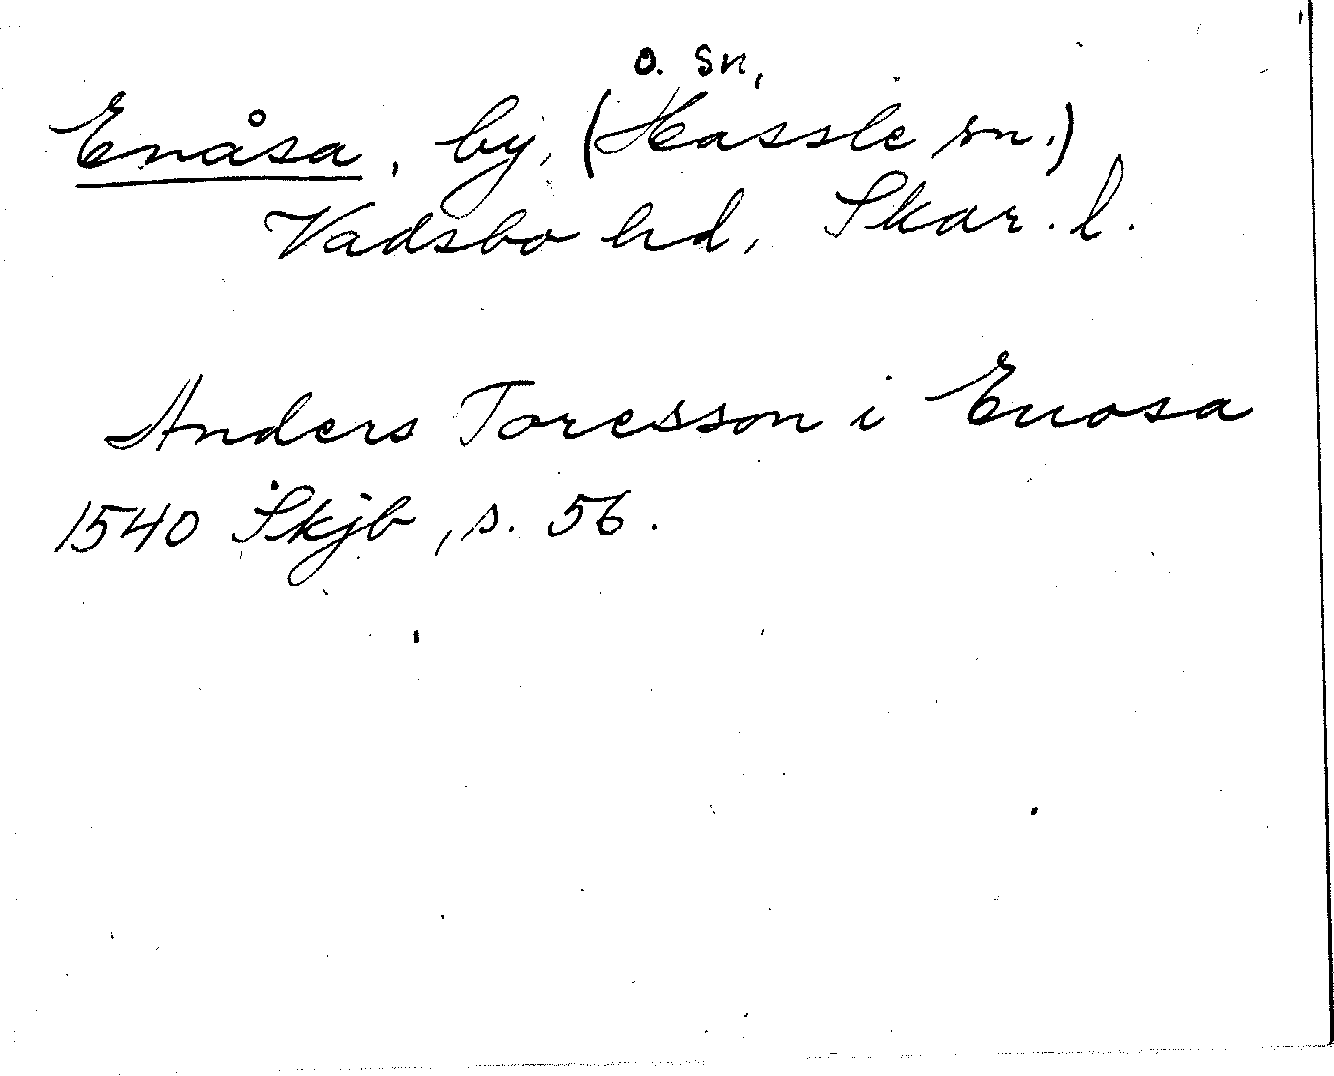 o. sn,
Enåsa, by, (Hassle sn.)
Vadsbo hd, Skar. l.
Anders Toresson i Enosa
1540 Skjb, s. 56.